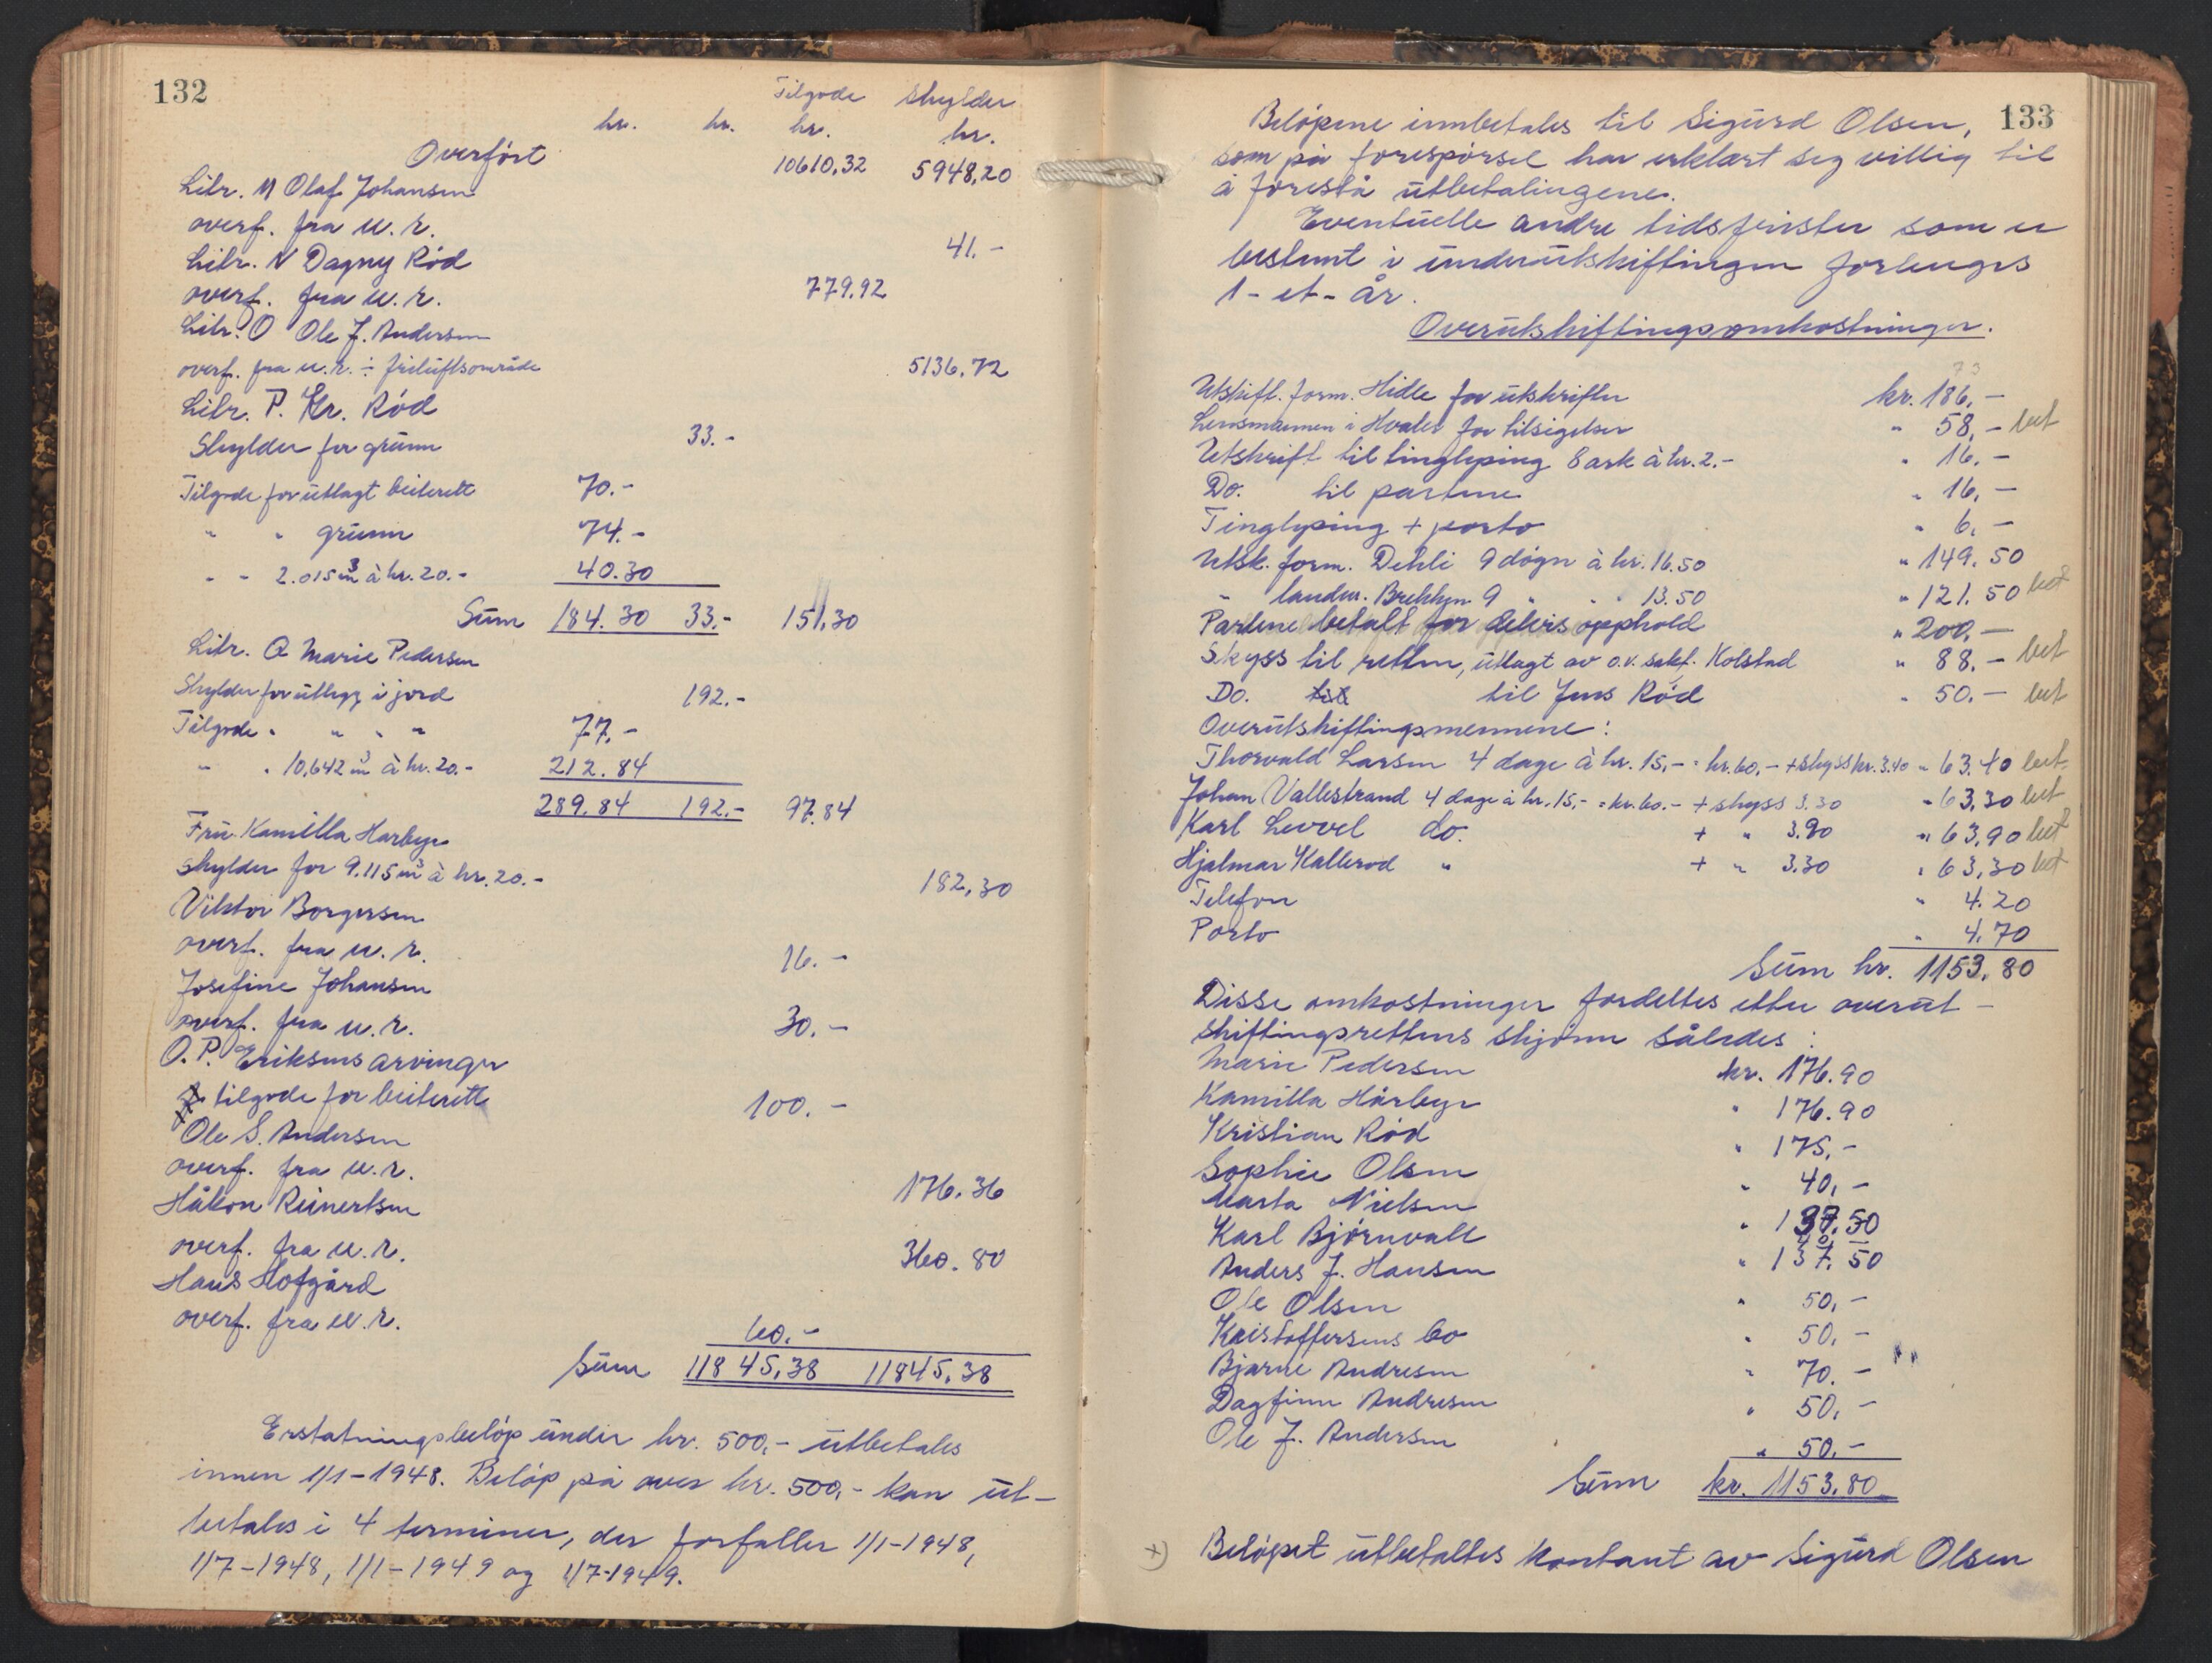 132
Tilgode Skylder
kr. kr. kr. kr.
Overført 10610,32 5948,20
Litr. M Olaf Johansen
overf. fra u. r. 41.-
Litr. N Dagny Rød
overf. fra u. r. 779.92
Litr. O Ole J. Andersen
overf. fra u. r. ÷ friluftsområde 5136.72
Litr. P. Kr. Rød
Skylder for grunn 33.-
Tilgode for utlagt beiterett 70.-
" " grunn 74.-
" " 2.015 m³ à kr. 20.- 40.30
Sum 184.30 33.- 151,30
Litr. Q Marie Pedersen
Skylder for utlegg i jord 192.-
Tilgode " " " " 77.-
" " 10,642 m³ à kr. 20.- 212.84
289.84 192.- 97.84
Fru Kamilla Harbye
skylder for 9.115 m³ à kr. 20.- 182,30
Viktor Borgersen
overf. fra u. r. 16.-
Josefine Johansen
overf. fra u. r. 30.-
O. P. Eriksens arvinger
tilgode for beiterett 100.-
Ole S. Andersen
overf. fra u. r. 176.36
Håkon Reinertsen
overf. fra u. r. 360.80
Hans Hofgård
overf. fra u. r. 60.-
Sum 11845,38 11845,38
Erstatningsbeløp under kr. 500,- utbetales
innen 1/1-1948. Beløp på over kr. 500,- kan ut-
betales i 4 terminer, der forfaller 1/1-1948,
1/7-1948, 1/1-1949 og 1/7-1949.
133
Beløpene innbetales til Sigurd Olsen,
som på forespørsel har erklært seg villig til
å forestå utbetalingene.
Eventuelle andre tidsfrister som er
bestemt i underutskiftingen forlenges
1-et-år.
Overutskiftingsomkostninger.
73
Utskift. form. Hidle for utskrifter kr. 186,-
Lensmannen i Hvaler for tilsigelser " 58,- bet
Utskrift til tinglysing 8 ark à kr. 2.- " 16.-
Do. til partene " 16,-
Tinglysing + porto " 6,-
Utsk. form. Dehli 9 døgn à kr. 16.50 " 149.50
" landm. Brekken 9 " " " 13.50 " 121.50 bet
Partene betalt for delvis opphold " 200,-
Skyss til retten, utlagt av o.r. sakf. Kolstad " 88.- bet
Do. til til Jens Rød " 50.- bet
Overutskiftingsmennene:
Thorvald Larsen 4 dage à kr. 15,- = kr. 60,- + skyss kr. 3.40 " 63.40 bet.
Johan Vallestrand 4 dage à kr. 15,- = kr. 60.- + skyss 3.30 " 63,30 bet
Karl Levorl do. + " 3.90 " 63,90 bet
Hjalmar Kallerød " + " 3.30 " 63,30 bet
Telefon " 4.20
Porto " 4.70
Sum kr. 1153.80
Disse omkostninger fordeltes etter overut-
skiftingsrettens skjønn således:
Marie Pedersen kr. 176.90
Kamilla Hårbye " 176.90
Kristian Rød " 175,-
Sophie Olsen " 40,-
Marta Nielsen
Karl Bjørnvall " 137.50
40,-
Anders J. Hansen " 137.50
Ole Olsen " 50,-
Kristoffersens bo " 50,-
Bjarne Andresen " 70.-
Dagfinn Andresen " 50,-
Ole J. Andersen " 50.-
Sum kr. 1153.80
x) Beløpet utbetaltes kontant av Sigurd Olsen